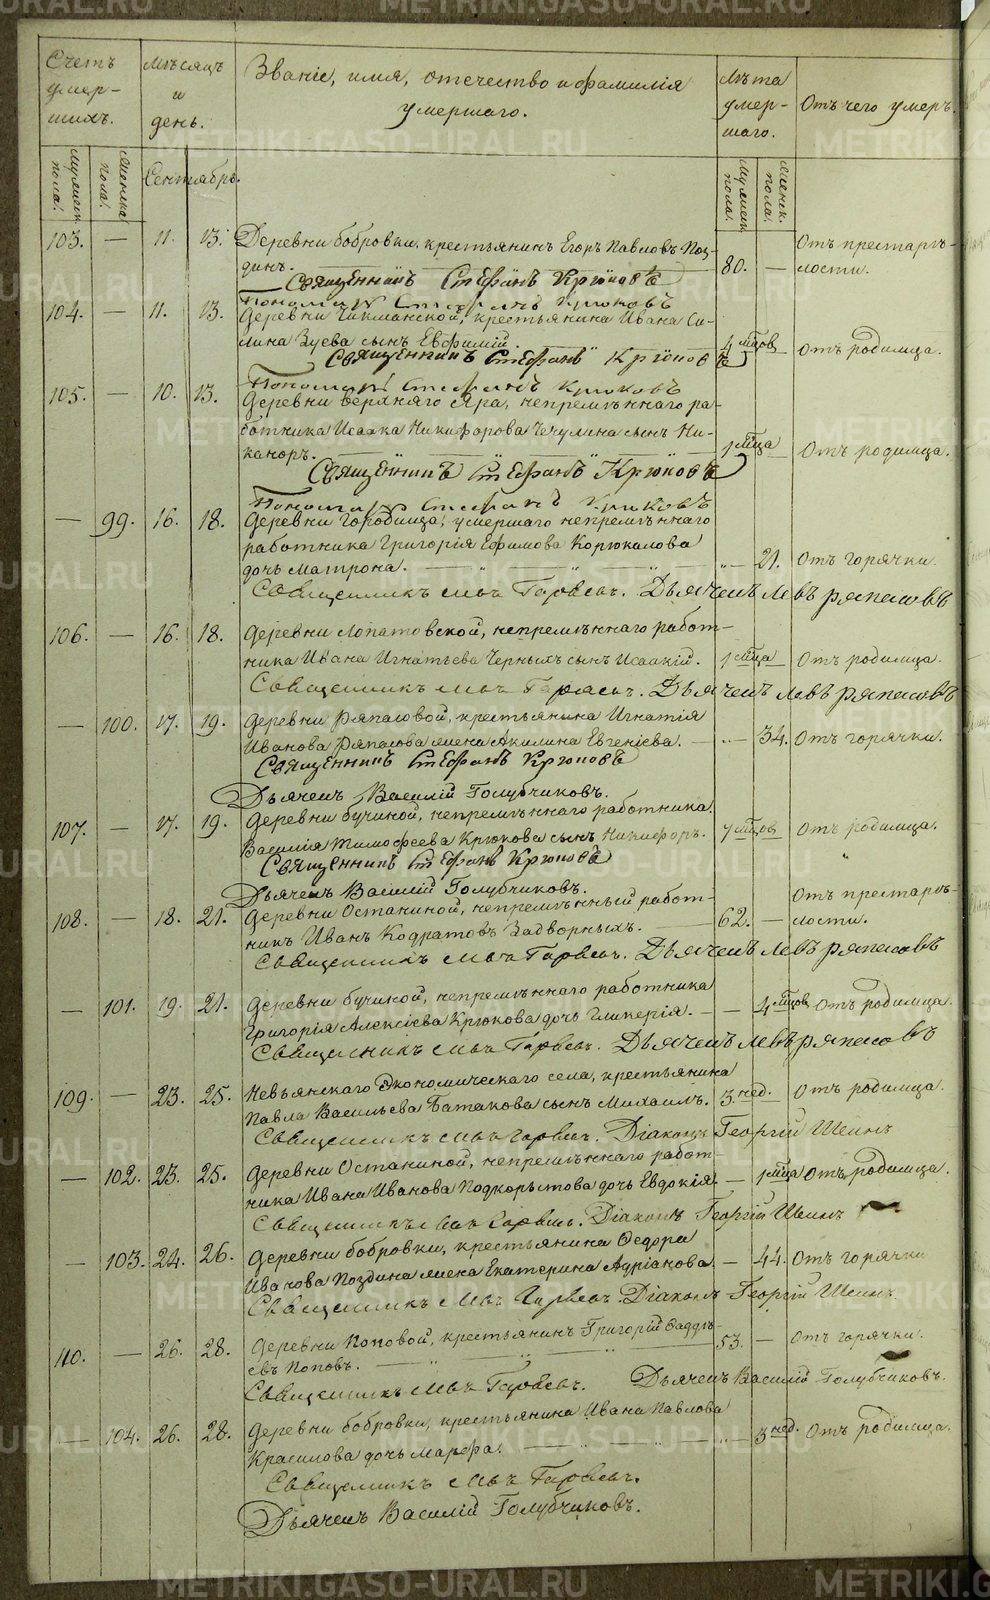 Счетъ умер- шихъ.
Мѣсяцъ и день.
Званіе, имя, отечество и фамилія умершаго.
Лѣта умер- шаго.
Отъ чего умеръ.
Мужеск. пола.
Женска пола.
Сентябрь.
Мужеск. пола.
Женск. пола.
103. — 11. 13. Деревни бобровки, крестьянинъ Егоръ Павловъ Поз- Отъ престарѣ-
динъ. 80. — лости.
Священникъ Стефанъ Крюковъ
Пономарь Стефанъ Крюковъ
104. — 11. 13. Деревни Чикманской, крестьянина Ивана Си-
лина Зуева сынъ Евфимій. 4 мѣцов Отъ родимца.
Священникъ Стефанъ Крюковъ
Пономарь Стефанъ Крюковъ
105. — 10. 13. Деревни верхняго Яра, непремѣннаго ра-
ботника Исаака Никифорова Чечулина сынъ Ни-
каноръ. 1 мѣца Отъ родимца.
Священникъ Стефанъ Крюковъ
Пономарь Стефанъ Крюковъ
— 99. 16. 18. Деревни городища, умершаго непремѣннаго
работника Григорія Ефимова Корюкалова
дочь Матрона. — 21. Отъ горячки.
Священникъ Дьячекъ Левъ Ряпасовъ
106. — 16. 18. Деревни Лопатовской, непремѣннаго работ-
ника Ивана Игнатьева Черныхъ сынъ Исаакій. 1 мѣца Отъ родимца.
Священникъ Дьячекъ Левъ Ряпасовъ
— 100. 17. 19. Деревни Ряпасовой, крестьянина Игнатія
Иванова Ряпасова жена Акилина Евгеніева. — 34. Отъ горячки.
Священникъ Стефанъ Крюковъ
Дьячекъ Василій Голубчиковъ.
107. — 17. 19. Деревни бучиной, непремѣннаго работника
Василія Тимофеева Крюкова сынъ Никифоръ. 7 мѣцов Отъ родимца.
Священникъ Стефанъ Крюковъ
Дьячекъ Василій Голубчиковъ.
108. — 18. 21. Деревни Останиной, непремѣнный работ- Отъ престарѣ-
никъ Иванъ Кодратовъ Задворныхъ. 62. — лости.
Священникъ Дьячекъ Левъ Ряпасовъ
— 101. 19. 21. Деревни бучиной, непремѣннаго работника
Григорія Алексіева Крюкова дочь Гликерія. — 4 мѣцов Отъ родимца.
Священникъ Дьячекъ Левъ Ряпасовъ
109. — 23. 25. Невьянскаго Экономическаго села, крестьянина
Павла Васильева Батакова сынъ Михаилъ. 3 нед. Отъ родимца.
Священникъ Діаконъ Георгій Шеинъ
— 102. 23. 25. Деревни Останиной, непремѣннаго работ-
ника Ивана Иванова Подкорытова дочь Евдокія. — 1 мѣца Отъ родимца.
Священникъ Діаконъ Георгій Шеинъ
— 103. 24. 26. Деревни бобровки, крестьянина Ѳедора
Иванова Поздина жена Екатерина Адріанова. — 44. Отъ горячки
Священникъ Діаконъ Георгій Шеинъ
110. — 26. 28. Деревни Поповой, крестьянинъ Григорій Фаддѣ-
евъ Поповъ. 53. — Отъ горячки.
Священникъ Дьячекъ Василій Голубчиковъ.
— 104. 26. 28. Деревни бобровки, крестьянина Ивана Павлова
Красилова дочь Марфа. 3 нед. Отъ родимца.
Священникъ
Дьячекъ Василій Голубчиковъ.
METRIKI.GASO-URAL.RU